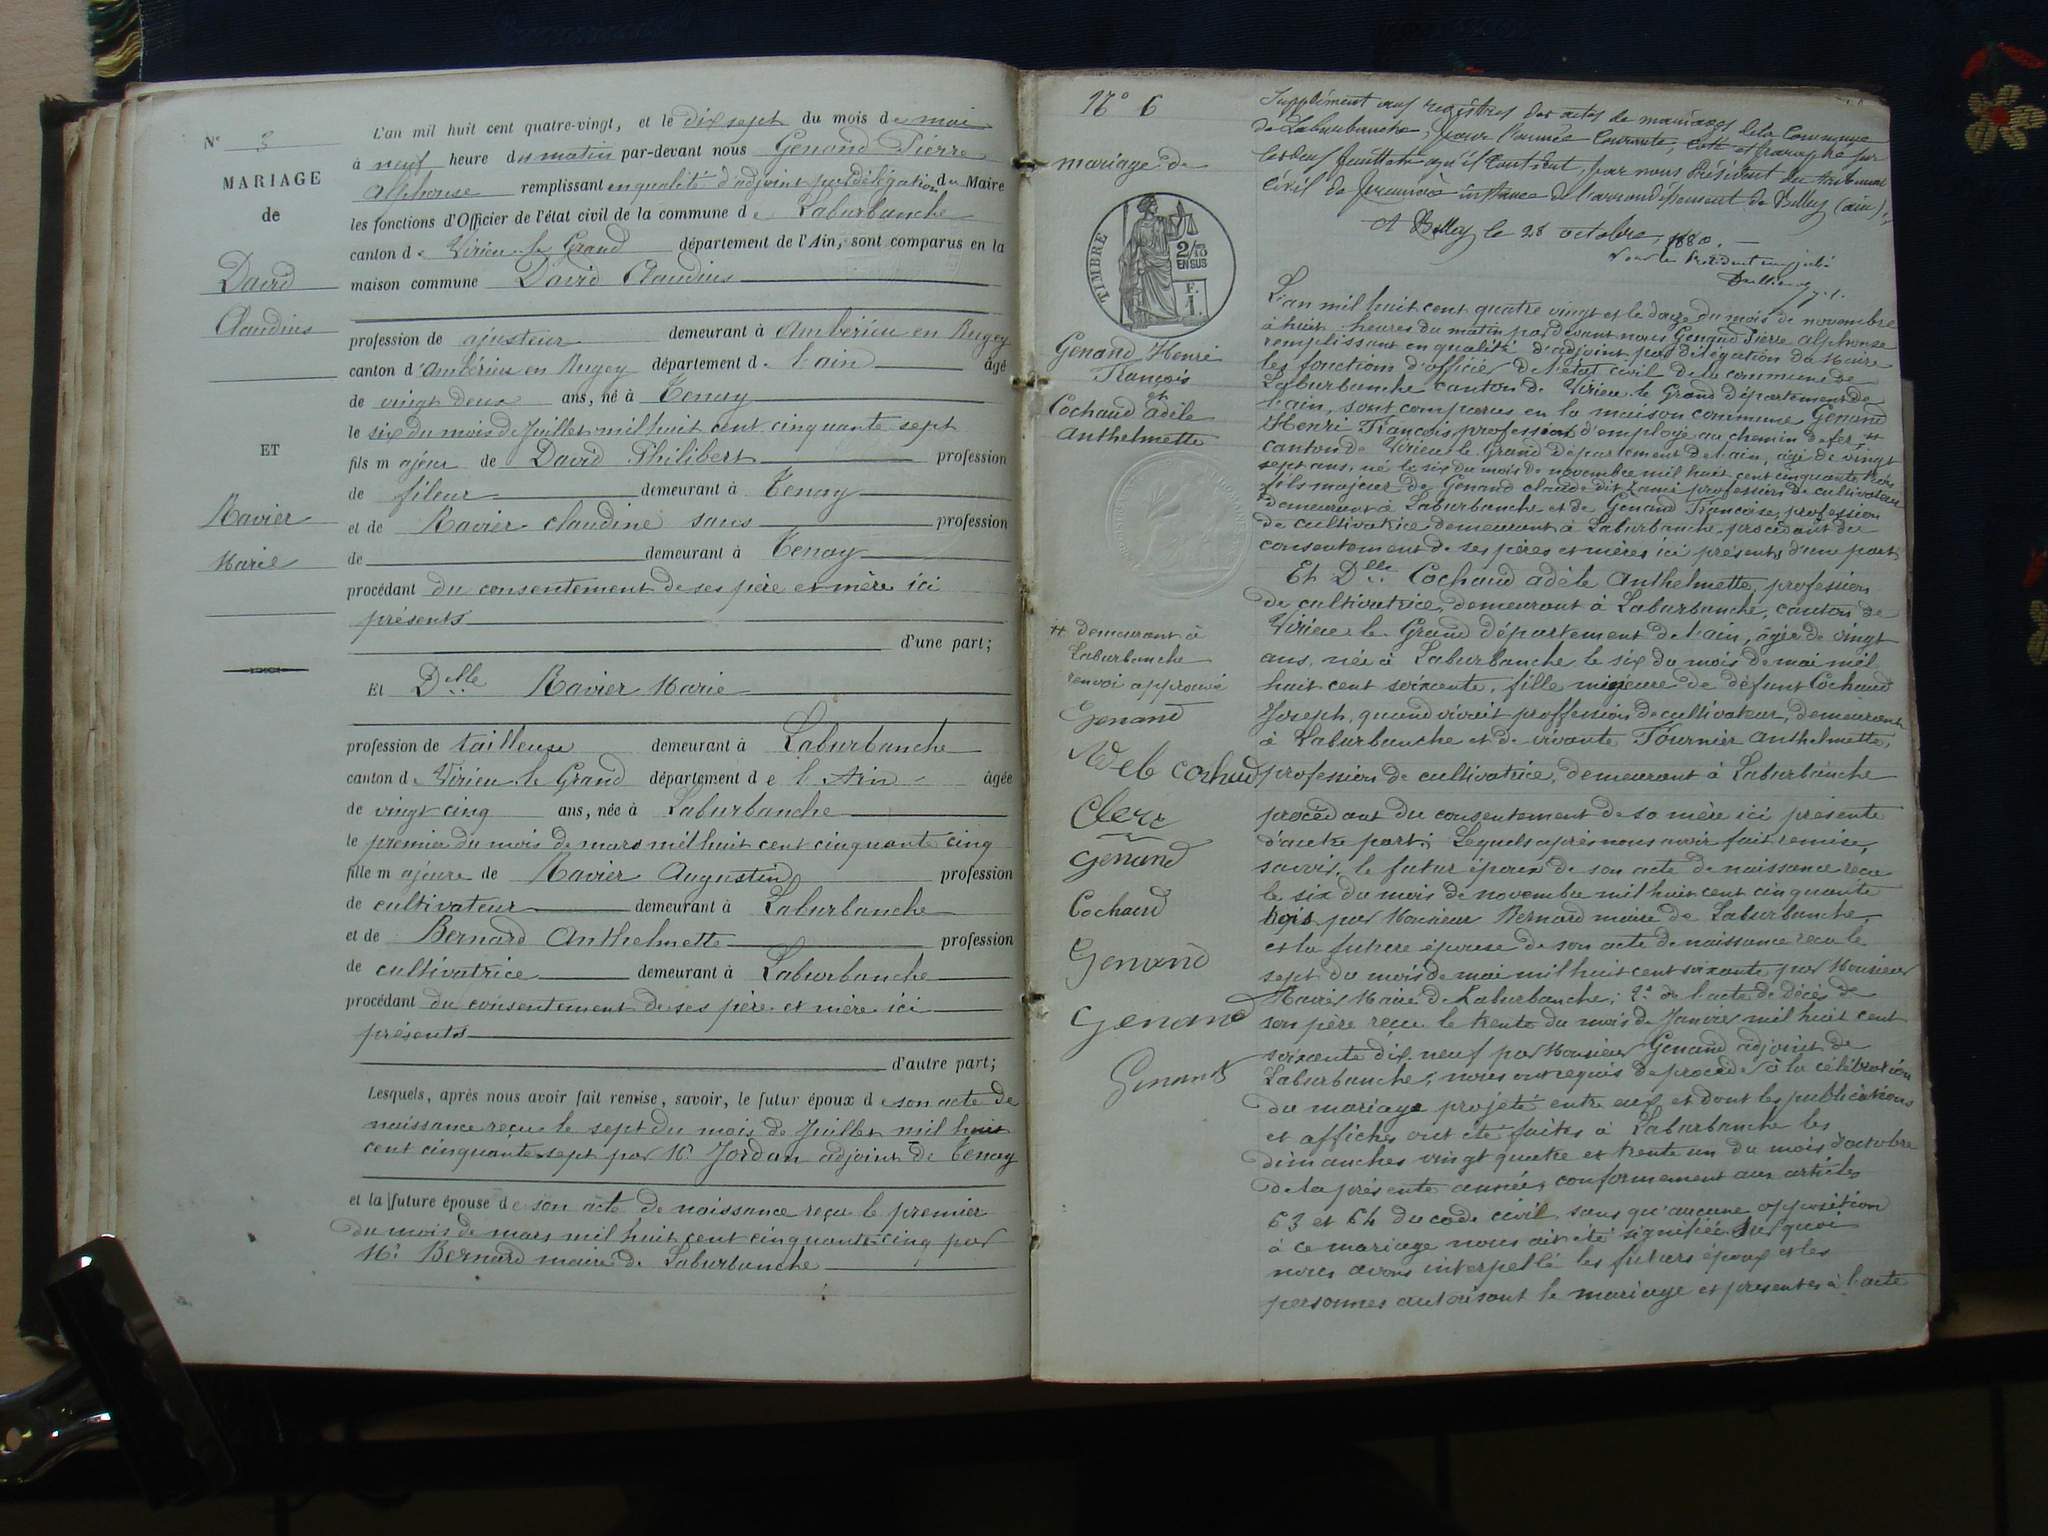 N° 3
MARIAGE
de
David
Claudius
ET
Ravier
Marie
L'an mil huit cent quatre-vingt, et le dix sept du mois de mai
à neuf heure du matin par-devant nous Genand Pierre
Alphonse remplissant en qualité d'adjoint par délégation du Maire
les fonctions d'Officier de l'état civil de la commune de Laburbanche
canton de Virieu-le-Grand département de l'Ain, sont comparus en la
maison commune David Claudius
profession de ajusteur demeurant à Ambérieu en Bugey
canton d'Ambérieu en Bugey département de l'ain âgé
de vingt deux ans, né à Tenay
le six du mois de Juillet mil huit cent cinquante sept
fils majeur de David Philibert profession
de fileur demeurant à Tenay
et de Ravier Claudine sans profession
de demeurant à Tenay
procédant du consentement de ses père et mère ici
présents
d'une part;
Et Delle Ravier Marie
profession de tailleuse demeurant à Laburbanche
canton de Virieu-le-Grand département de l'Ain âgée
de vingt cinq ans, née à Laburbanche
le premier du mois de mars mil huit cent cinquante cinq
fille majeure de Ravier Augustin profession
de cultivateur demeurant à Laburbanche
et de Bernard Anthelmette profession
de cultivatrice demeurant à Laburbanche
procédant du consentement de ses père et mère ici
présents
d'autre part;
Lesquels, après nous avoir fait remise, savoir, le futur époux de son acte de
naissance reçu le sept du mois de Juillet mil huit
cent cinquante sept par Mr. Jordan adjoint de Tenay
et la future épouse de son acte de naissance reçu le premier
du mois de mars mil huit cent cinquante cinq par
Mr. Bernard maire de Laburbanche
N° 6
mariage de
TIMBRE
2/10
EN SUS
F.
1
Genand Henri
François
et
Cochaud adèle
Anthelmette
++ demeurant à
Laburbanche
renvoi approuvé
Genand
Adele cochaud
Clerc
Genand
Cochaud
Genand
Genand
Genand
Supplément aux registres des actes de mariages de la Commune
de Laburbanche, pour l'année Courante, coté et paraphé par
les deux feuillets qu'il Contient, par nous Président du tribunal
civil de première instance de l'arrondissement de Belley (ain)
A Belley le 28 octobre 1880.
Pour le Président empêché
L'an mil huit cent quatre vingt et le douze du mois de novembre
à huit heures du matin par devant nous Genand Pierre alphonse
remplissant en qualité d'adjoint par délégation du Maire
les fonctions d'officier de l'état civil de la commune de
Laburbanche canton de Virieu-le-Grand département de
l'ain, sont comparus en la maison commune Genand
Henri François profession d'employé au chemin de fer ++
canton de Virieu-le-Grand département de l'ain, âgé de vingt
sept ans, né le six du mois de novembre mil huit cent cinquante trois
fils majeur de Genand claude dit profession de cultivateur
demeurant à Laburbanche et de Genand Françoise, profession
de cultivatrice demeurant à Laburbanche, procédant du
consentement de ses pères et mères ici présents d'une part
Et Delle Cochaud adèle Anthelmette, profession
de cultivatrice, demeurant à Laburbanche, canton de
Virieu-le-Grand département de l'ain, âgée de vingt
ans, née à Laburbanche le six du mois de mai mil
huit cent soixante, fille mineure de défunt Cochaud
Joseph, quand vivait proffession de cultivateur, demeurant
à Laburbanche et de vivante Fournier Anthelmette,
profession de cultivatrice, demeurant à Laburbanche
procédant du consentement de sa mère ici présente
d'autre part; Lequels après nous avoir fait remise,
savoir, le futur époux de son acte de naissance reçu
le six du mois de novembre mil huit cent cinquante
trois par Monsieur Bernard maire de Laburbanche,
et la future épouse de son acte de naissance reçu le
sept du mois de mai mil huit cent soixante par Monsieur
Maire de Laburbanche; 2° de l'acte de décès de
son père reçu le trente du mois de Janvier mil huit cent
soixante dix-neuf par Monsieur Genand adjoint de
Laburbanche; nous ont requis de procéder à la célébration
du mariage projeté entre eux et dont les publications
et affiches ont été faites à Laburbanche les
dimanches vingt quatre et trente un du mois d'octobre
de la présente année, conformement aux articles
63 et 64 du code civil, sans qu'aucune opposition
à ce mariage nous ait été signifiée. Sur quoi
nous avons interpellé les futurs époux et les
personnes autorisant le mariage et présentes à l'acte